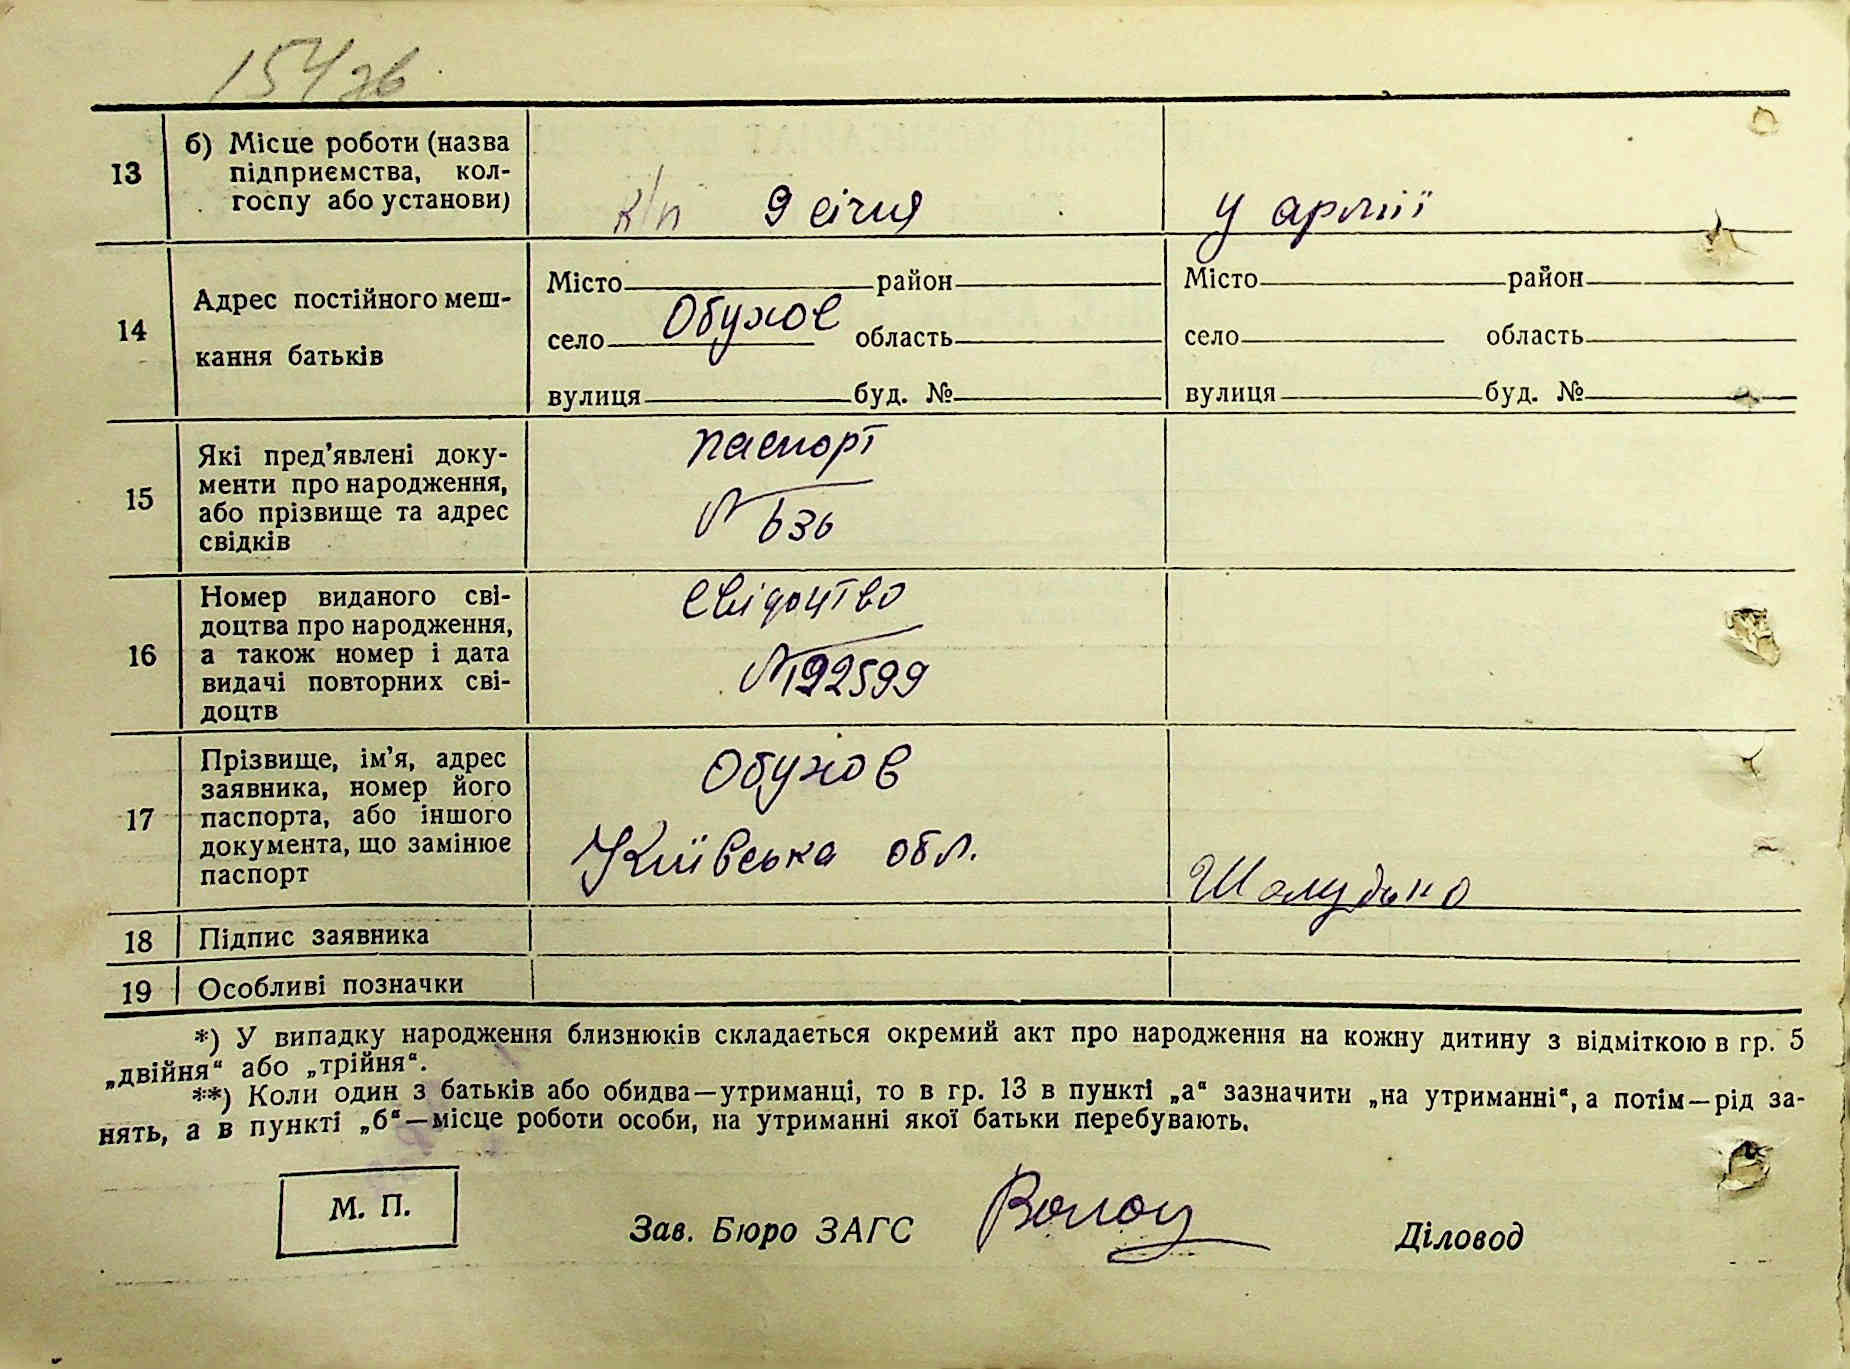 154зв
13
б) Місце роботи (назва
підприємства, кол-
госпу або установи)
к/п 9 січня
у армії
14
Адрес постійного меш-
кання батьків
Місто район
село Обухов область
вулиця буд. №
Місто район
село область
вулиця буд. №
15
Які пред'явлені доку-
менти про народження,
або прізвище та адрес
свідків
паспорт
№ 636
16
Номер виданого сві-
доцтва про народження,
а також номер і дата
видачі повторних сві-
доцтв
Свідоцтво
№192599
17
Прізвище, ім'я, адрес
заявника, номер його
паспорта, або іншого
документа, що замінює
паспорт
Обухов
Київська обл.
Шолудько
18
Підпис заявника
19
Особливі позначки
*) У випадку народження близнюків складається окремий акт про народження на кожну дитину з відміткою в гр. 5
„двійня“ або „трійня“.
**) Коли один з батьків або обидва—утриманці, то в гр. 13 в пункті „а“ зазначити „на утриманні“, а потім—рід за-
нять, а в пункті „б“—місце роботи особи, на утриманні якої батьки перебувають.
М. П.
Зав. Бюро ЗАГС
Діловод